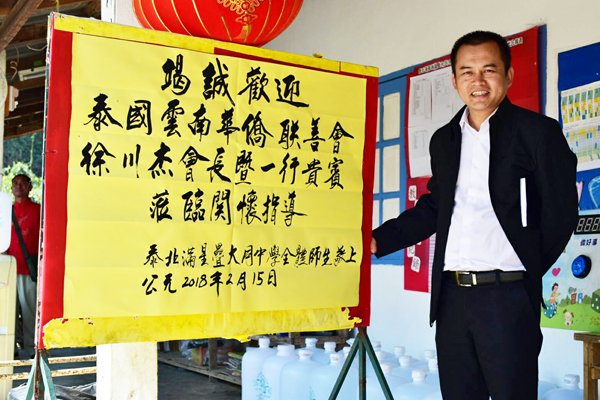 竭誠歡迎
泰國雲南華僑联善會
徐川杰會長暨一行貴賓
蒞臨関懷指導
泰北滿星疊大同中學全體師生敬上
公元2018年2月15日